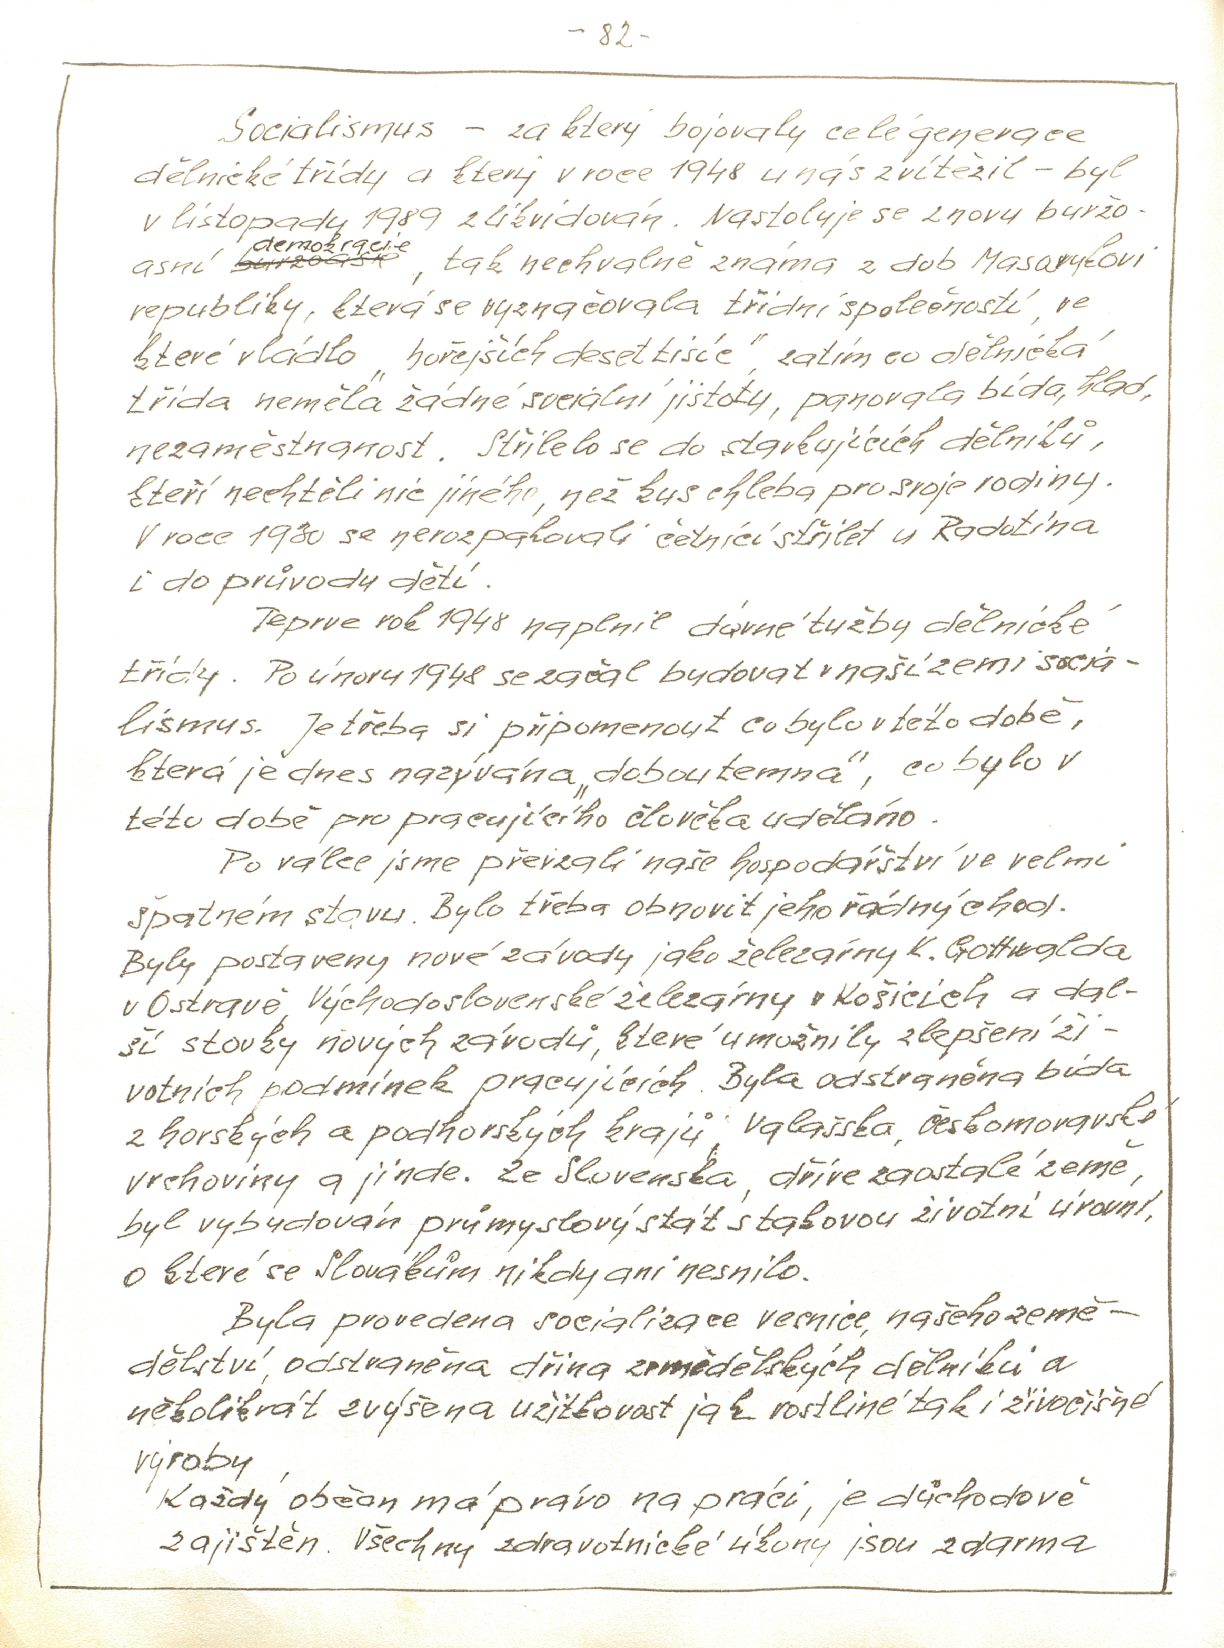 - 82 -
Socialismus - za který bojovaly celé generace
dělnické třídy a který v roce 1948 u nás zvítězil - byl
v listopadu 1989 zlikvidován. Nastoluje se znovu buržo-
demokracie
asní buržoasie, tak nechvalně známa z dob Masarykovi
republiky, která se vyznačovala třídní společností, ve
které vládlo „hořejších desettisíc", zatím co dělnická
třída neměla žádné sociální jistoty, panovala bída, hlad,
nezaměstnanost. Střílelo se do stávkujících dělníků,
kteří nechtěli nic jiného, než kus chleba pro svoje rodiny.
V roce 1930 se nerozpakovali četníci střílet u Radotína
i do průvodu dětí.
Teprve rok 1948 naplnil dávné tužby dělnické
třídy. Po únoru 1948 se začal budovat v naší zemi socia-
lismus. Je třeba si připomenout co bylo v této době,
která je dnes nazývána „dobou temna", co bylo v
této době pro pracujícího člověka uděláno.
Po válce jsme převzali naše hospodářství ve velmi
špatném stavu. Bylo třeba obnovit jeho řádný chod.
Byly postaveny nové závody jako železárny K. Gottwalda
v Ostravě, Východoslovenské železárny v Košicích a dal-
ší stovky nových závodů, které umožnily zlepšení ži-
votních podmínek pracujících. Byla odstraněna bída
z horských a podhorských krajů, Valašska, Českomoravské
vrchoviny a jinde. Ze Slovenska, dříve zaostalé země,
byl vybudován průmyslový stát s takovou životní úrovní,
o které se Slovákům nikdy ani nesnilo.
Byla provedena socializace vesnice, našeho země-
dělství, odstraněna dřina zemědělských dělníků a
několikrát zvýšena užitkovost jak rostliné tak i živočišné
výroby,
Každý občan má právo na práci, je důchodově
zajištěn. Všechny zdravotnické úkony jsou zdarma